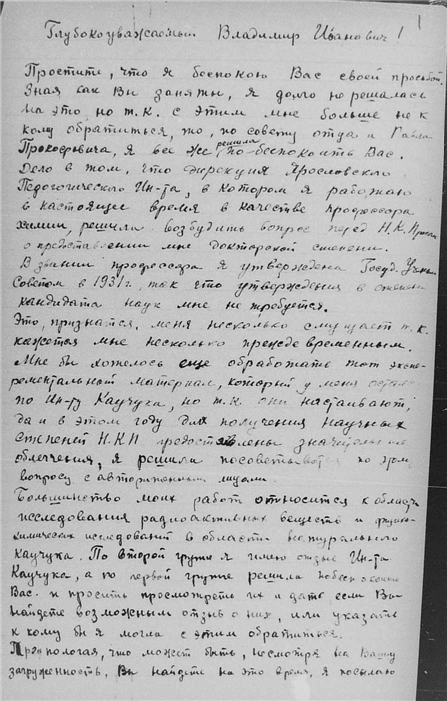 Глубокоуважаемый Владимир Иванович!
1
Простите, что я беспокою Вас своей просьбой.
Зная как Вы заняты, я долго не решалась
на это, но т.к. с этим мне больше не к
кому обратиться, то, по совету отца и Павла
Прокофьевича, я все же решила по-беспокоить Вас.
Дело в том, что дирекция Ярославского
Педогогического Ин-та, в котором я работаю
в настоящее время в качестве профессора
химии, решила возбудить вопрос перед Н.К.
о представлении мне докторской степени.
В звании профессора я утверждена Госуд. Учен.
Советом в 1931 г. так что утверждения в степени
кандидата наук мне не требуется.
Это, признаться, меня несколько смущает т.к.
кажется мне несколько преждевременным.
Мне бы хотелось еще обработать тот экспе-
рементальный материал, который у меня остался
по Ин-ту Каучука, но т.к. они настаивают,
да и в этом году для получения научных
степеней Н.К.П. предоставлены значительные
облегчения, я решила посоветываться по этому
вопросу с авторитетными лицами.
Большинство моих работ относится к области
исследования радиоактивных веществ и физико-
химических исследований в области натурального
Каучука. По второй группе я имею отзыв Ин-та
Каучука, а по первой группе решила побеспокоить
Вас и просить просмотреть их и дать, если Вы
найдете возможным отзыв о них, или указать
к кому бы я могла с этим обратиться.
Предпологая, что может быть, несмотря на Вашу
загруженность, Вы найдете на это время, я посылаю